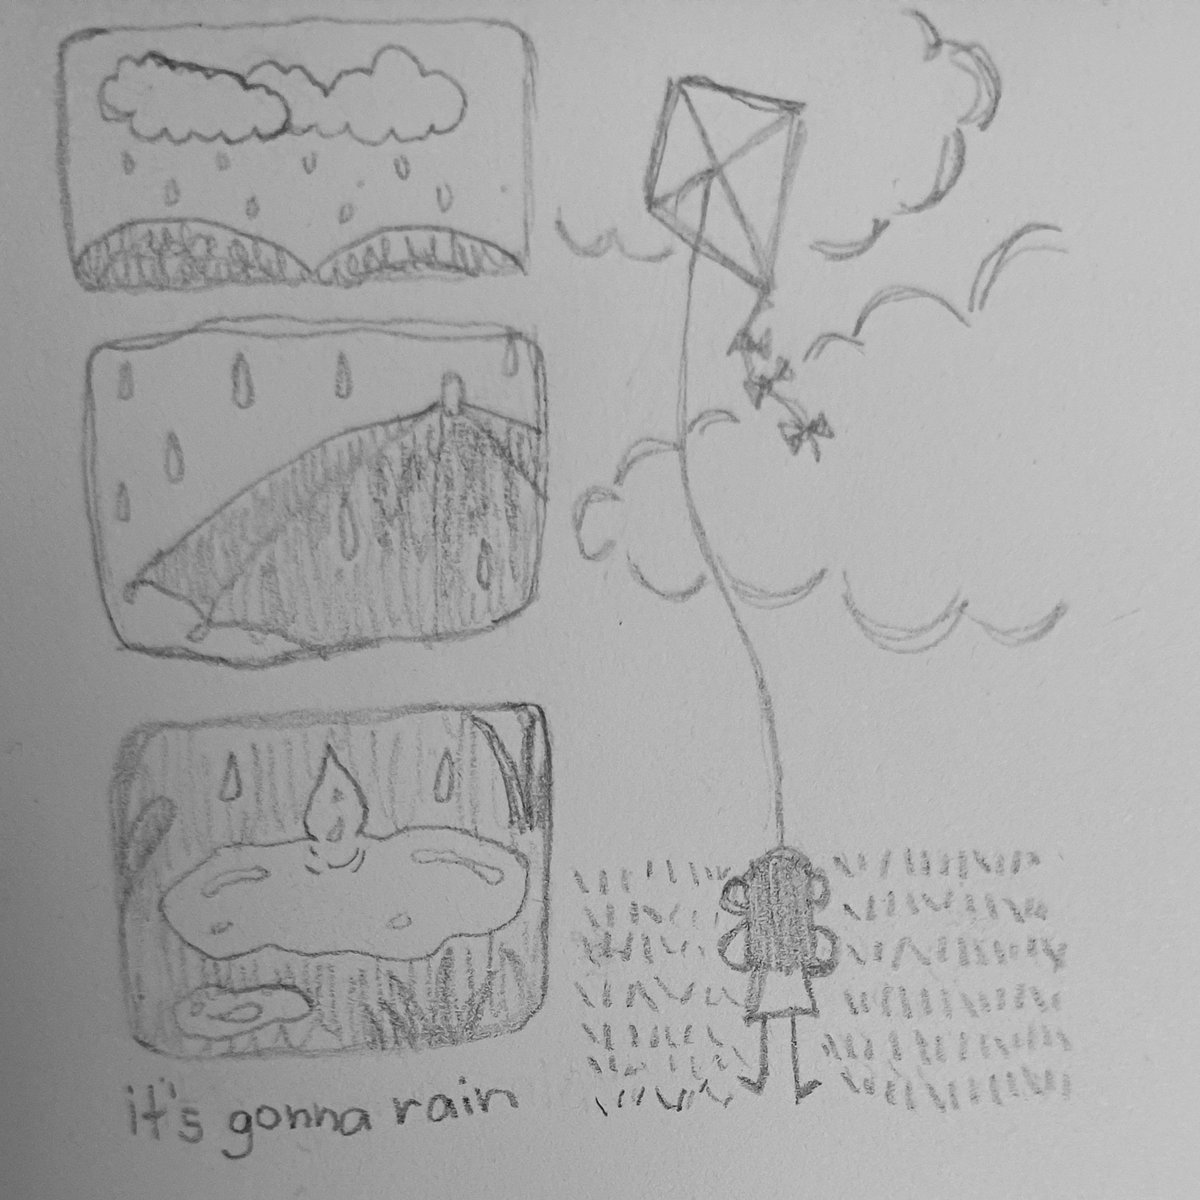 it's gonna rain